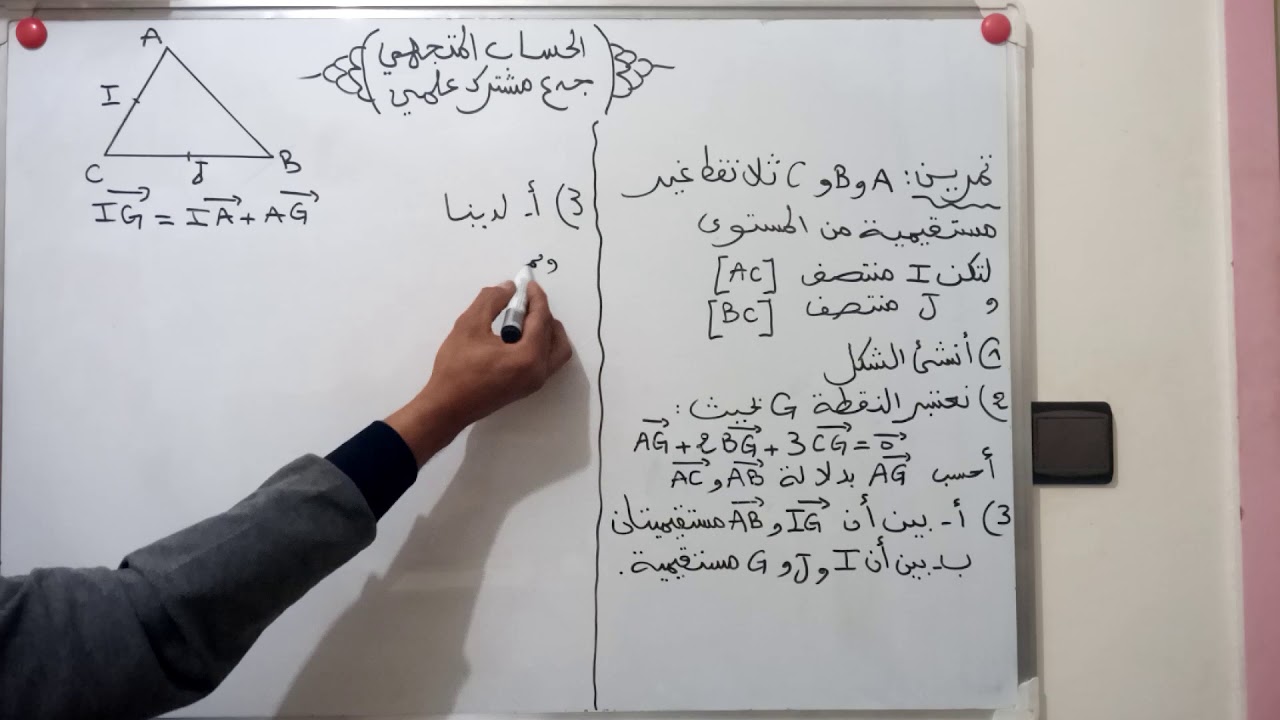 الحساب المتجهي
جذع مشترك علمي
تمرين: A و B و C ثلاث نقط غير
مستقيمية من المستوى
لتكن I منتصف [AC]
و J منتصف [BC]
1) أنشئ الشكل
2) نعتبر النقطة G بحيث:
$\overrightarrow{AG} + 2\overrightarrow{BG} + 3\overrightarrow{CG} = \overrightarrow{0}$
أحسب $\overrightarrow{AG}$ بدلالة $\overrightarrow{AB}$ و $\overrightarrow{AC}$
3) أ- بين أن $\overrightarrow{IG}$ و $\overrightarrow{AB}$ مستقيميتان
ب- بين أن I و J و G مستقيمية.
3) أ- لدينا
A
I
C
J
B
$\overrightarrow{IG} = \overrightarrow{IA} + \overrightarrow{AG}$